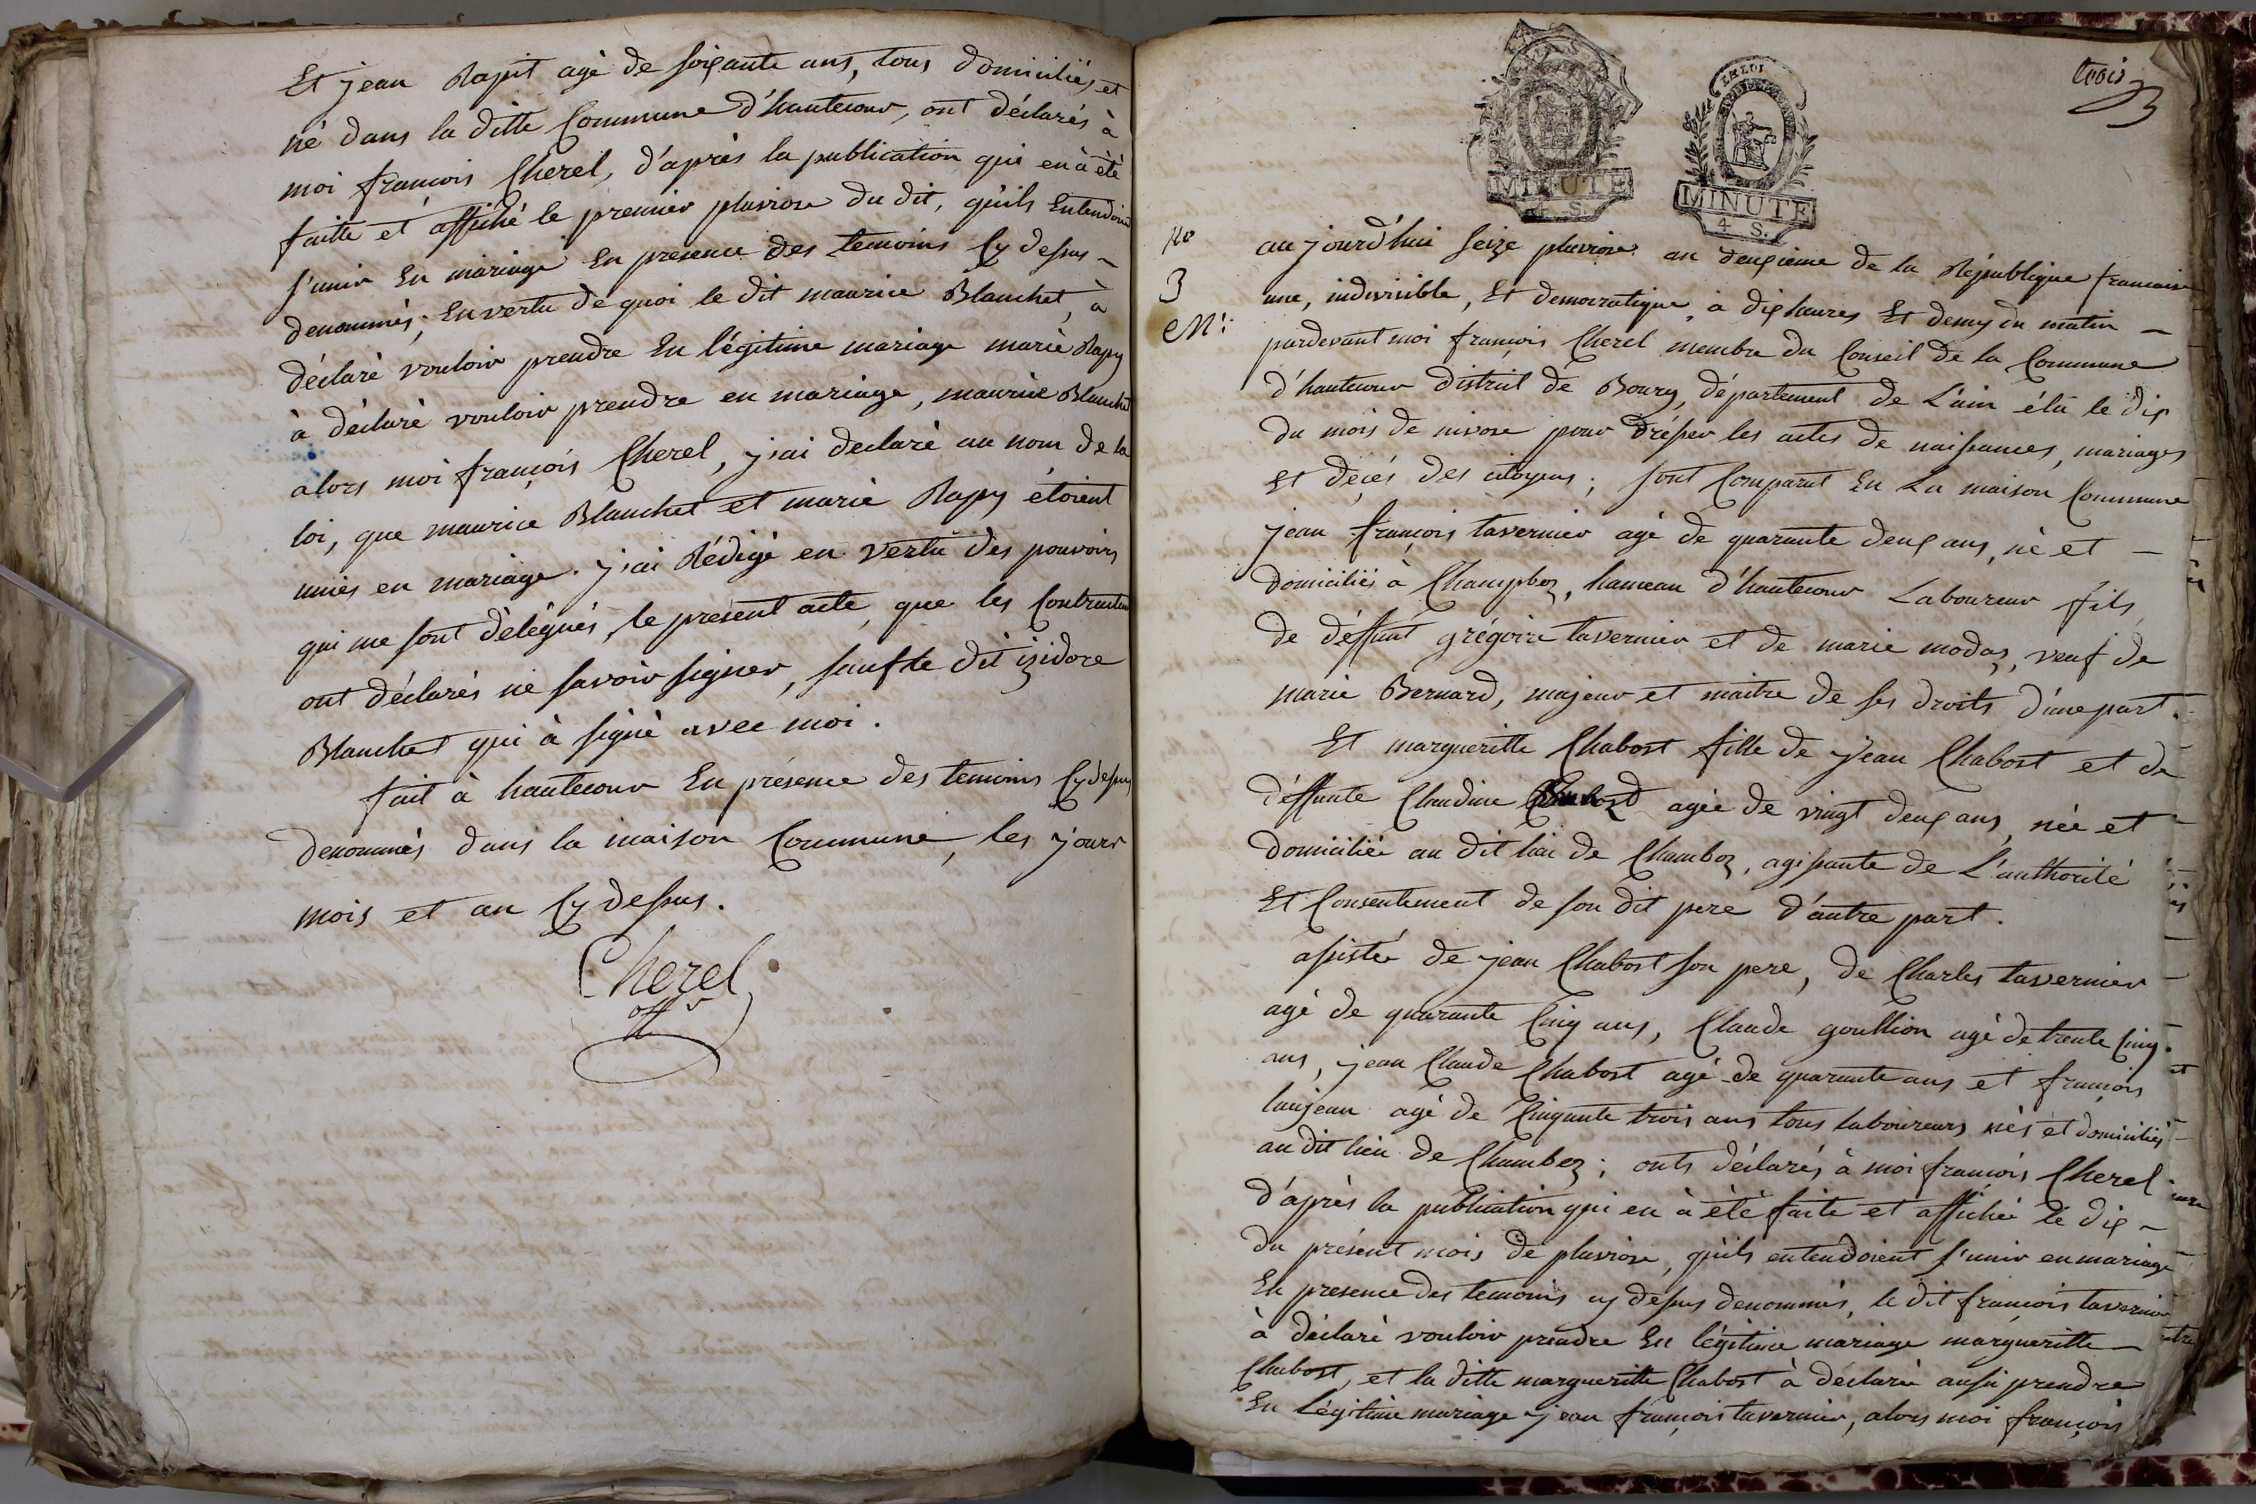 Et jean Rapit agé de soixante ans, tous domiciliés et
né dans la ditte Commune d'hautecour, ont déclarés à
moi françois Cherel, d'après la publication qui en à été
faitte et affiché le premier pluviose du dit, qu'ils Entendoient
s'unir En mariage En presence des temoins Cy dessus -
denommés; En vertu de quoi le dit maurice Blanchet, à
déclaré vouloir prendre En légitime mariage marie Rapy
à déclaré vouloir prendre en mariage, maurice Blanchet
alors moi françois Cherel, j'ai declaré au nom de la
loi, que maurice Blanchet et marie Rapy étoient
unies en mariage. j'ai Rédigé en vertu des pouvoirs
qui me sont délégués, le present acte, que les Contractans
ont déclarés ne savoir signer, sauf le dit izidore
Blanchet qui à signé avec moi.
fait à hautecour En présence des temoins Cy dessus
denommés dans la maison Commune, les jours
mois et an Cy dessus.
Cherel
off
trois
3
LA LOI
MINUTE
4 S.
MINUTE
4 S.
No
3
M:
aujourd'hui seize pluviose an deuxieme de la République francaise
une, indivisible, Et democratique, à dix heures Et demy du matin -
pardevant moi françois Cherel membre du Conseil de la Commune
d'hautecour district de Bourg, département de L'ain élu le dix
du mois de nivose pour drésser les actes de naissances, mariages
Et décés des citoyens; sont Comparut En La maison Commune
jean françois tavernier agé de quarante deux ans, né et -
domiciliés à Champboz, hameau d'hautecour Laboureur fils
de déffunt grégoire tavernier et de marie modas, veuf de
marie Bernard, majeur et maitre de ses droits d'une part.
Et margueritte Chabost fille de jean Chabost et de
déffunte Claudine agée de vingt deux ans, née et
domiciliée au dit lieu de Chamboz, agissante de L'authorité
Et Consentement de son dit pere d'autre part.
assistée de jean Chabost son pere, de Charles tavernier -
agé de quarante Cinq ans, Claude goullion agé de trente Cinq
ans, jean Claude Chabost agé de quarante ans et françois
laujeau agé de Cinquante trois ans tous laboureurs nés et domiciliés
au dit lieu de Chamboz; onts déclarés à moi francois Cherel
d'après la publication qui en à été faite et affichée le dix -
du présent mois de pluviose, qu'ils entendoient s'unir en mariage
En presence des temoins cy dessus denommés, le dit françois tavernier
à déclaré vouloir prendre En légitime mariage marguerittte -
Chabost, et la ditte marguerittte Chabost à déclarée aussi prendre
En Légitime mariage jean françois tavernier, alors moi françois